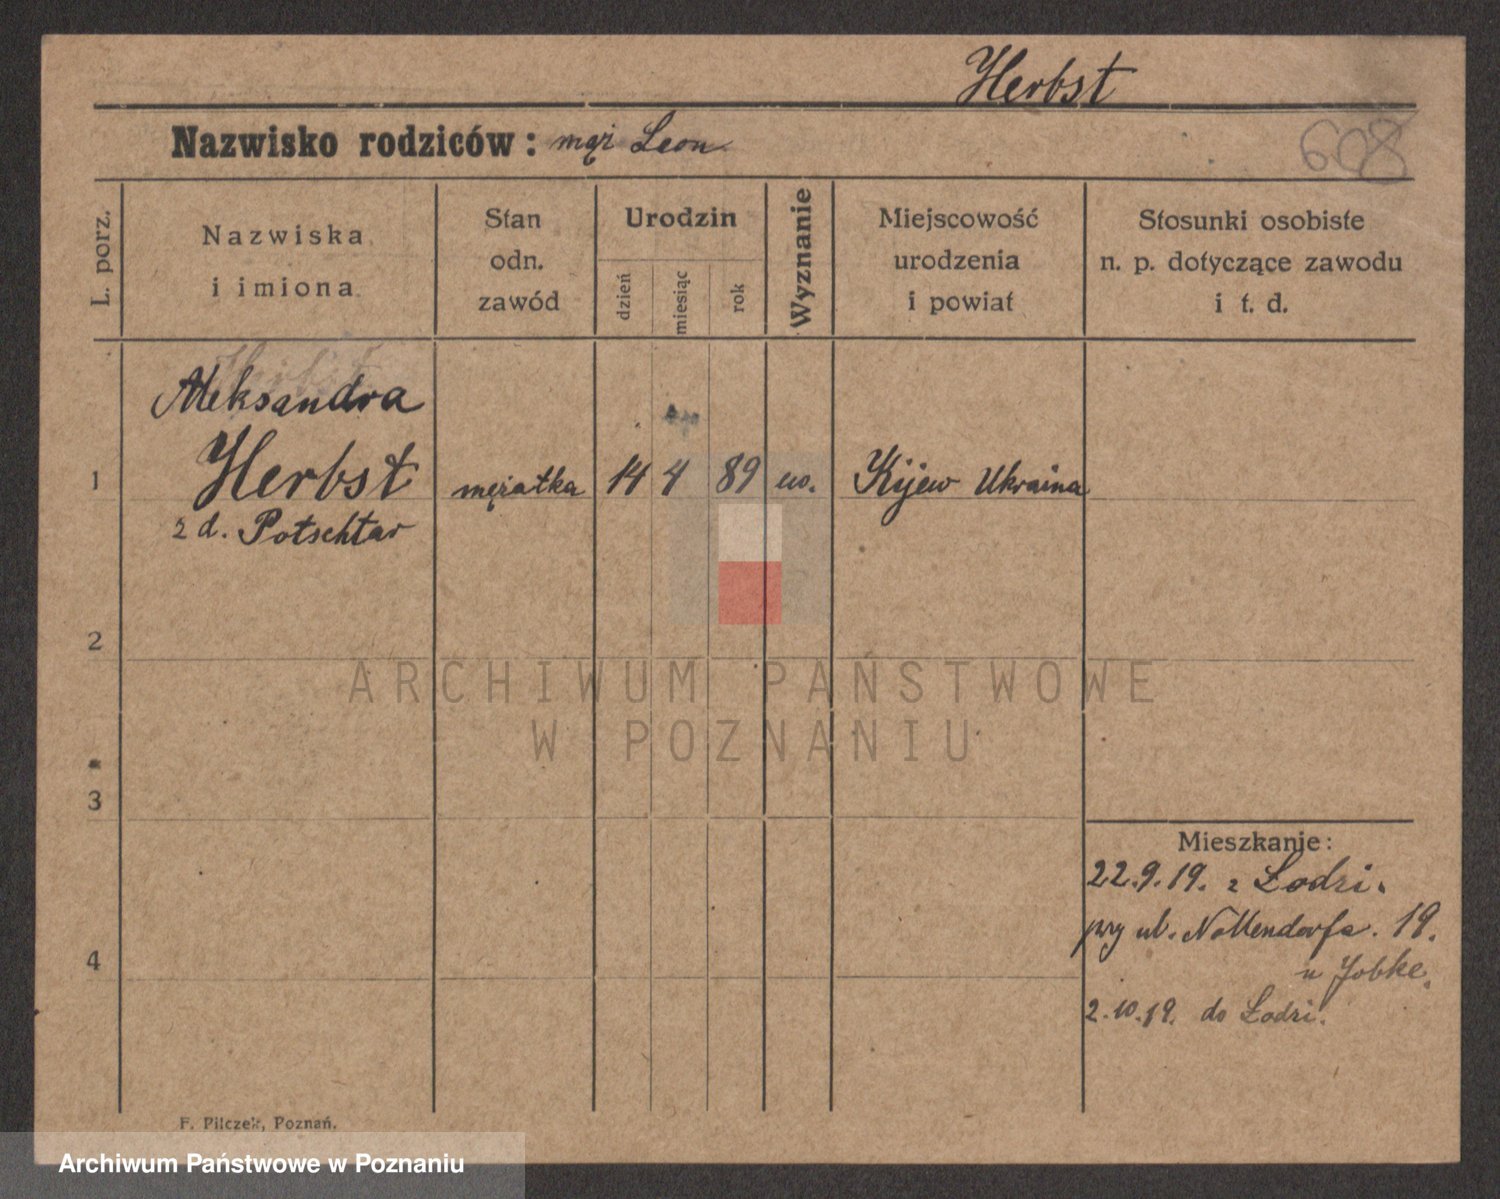 Herbst
Nazwisko rodziców: mąż Leon
608
L. porz.
Nazwiska
i imiona
Stan
odn.
zawód
Urodzin
dzień
miesiąc
rok
Wyznanie
Miejscowość
urodzenia
i powiat
Stosunki osobiste
n. p. dotyczące zawodu
i t. d.
1
Aleksandra
Herbst
z d. Potschtar
mężatka
14
4
89
ew.
Kijew Ukraina
2
3
4
Mieszkanie:
22.9.19. z Łodzi.
przy ul. Nollendorfa. 19.
u Jobke.
2.10.19. do Łodzi.
F. Pilczek, Poznań.
ARCHIWUM PAŃSTWOWE
W POZNANIU
Archiwum Państwowe w Poznaniu